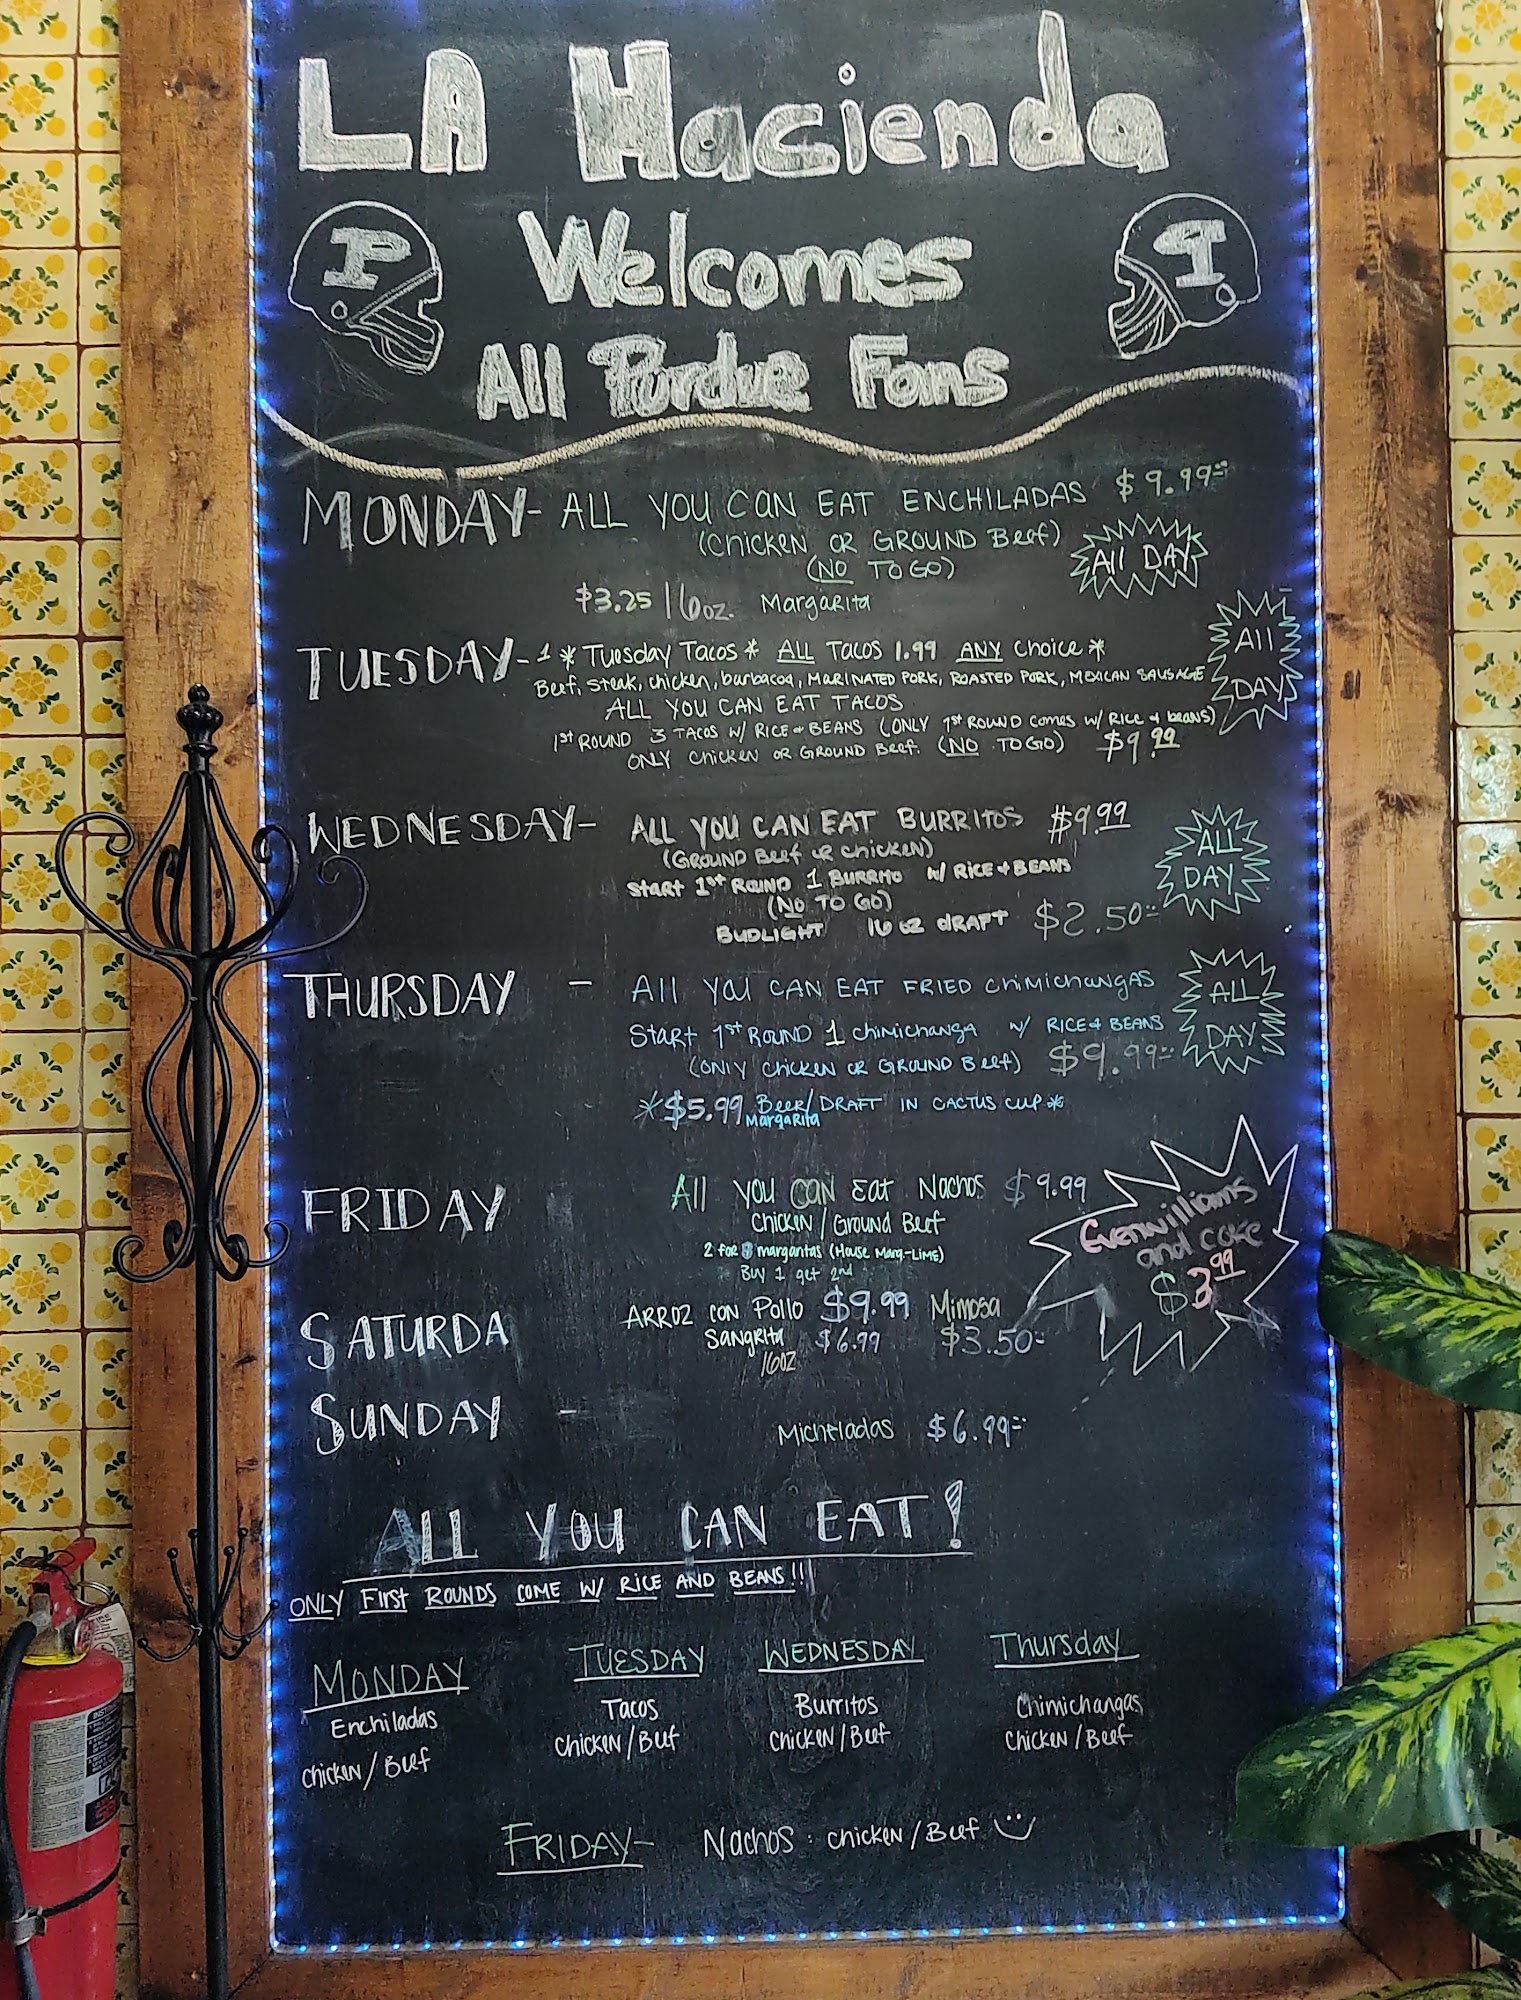 LA Hacienda
P
Welcomes
P
All Purdue Fans
MONDAY- ALL YOU CAN EAT ENCHILADAS $9.99
(Chicken OR GROUND Beef)
(NO TO GO)
All DAY
$3.25 16oz. Margarita
TUESDAY- 1 * Tuesday Tacos * ALL Tacos 1.99 ANY Choice *
Beef, Steak, chicken, barbacoa, MARINATED PORK, ROASTED PORK, MEXICAN SAUSAGE
ALL YOU CAN EAT TACOS
1st ROUND 3 TACOS W/ RICE & BEANS (ONLY 1st ROUND comes W/ RICE & beans)
ONLY Chicken OR GROUND Beef. (NO TO GO) $9.99
All
DAY
WEDNESDAY- ALL YOU CAN EAT BURRITOS $9.99
(GROUND Beef OR Chicken)
Start 1st ROUND 1 BURRITO W/ RICE & BEANS
(NO TO GO)
BUDLIGHT 16 oz DRAFT $2.50
ALL
DAY
THURSDAY - All YOU CAN EAT FRIED Chimichangas
Start 1st ROUND 1 Chimichanga W/ RICE & BEANS
(ONLY Chicken OR GROUND Beef) $9.99
ALL
DAY
* $5.99 Beer/DRAFT IN CACTUS CUP *
Margarita
FRIDAY All YOU CAN Eat Nachos $9.99
Chicken / Ground Beef
2 FOR margaritas (House Marg-LIME)
Buy 1 get 2nd
Evanwilliams
and coke
$3.99
SATURDA ARROZ CON Pollo $9.99 Mimosa
Sangrita $6.99 $3.50
16OZ
SUNDAY - Micheladas $6.99
ALL YOU CAN EAT!
ONLY First ROUNDS COME W/ RICE AND BEANS!!
MONDAY TUESDAY WEDNESDAY Thursday
Enchiladas Tacos Burritos Chimichangas
Chicken / Beef Chicken / Beef Chicken / Beef Chicken / Beef
FRIDAY- Nachos : chicken / Beef